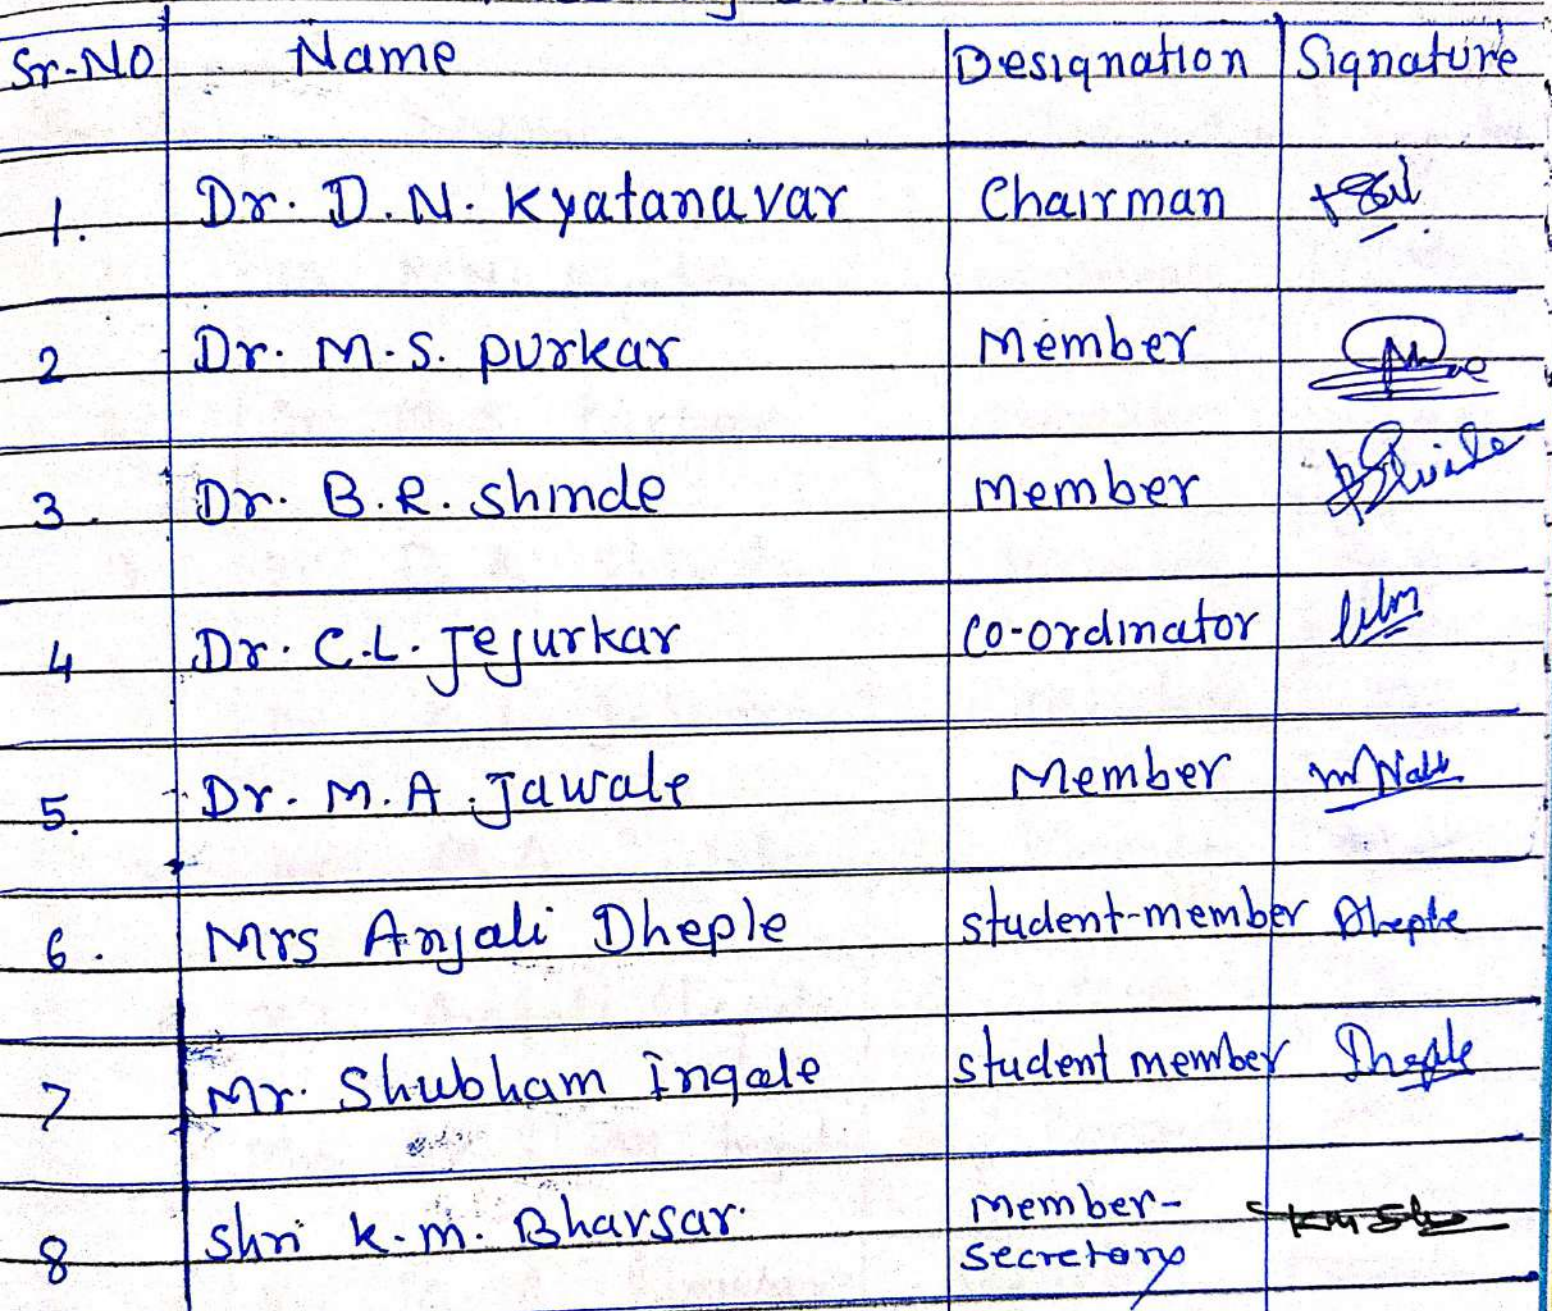 Sr-No Name Designation Signature
1. Dr. D. N. Kyatanavar Chairman
2 Dr. M. S. Purkar Member
3. Dr. B. R. Shinde Member
4 Dr. C. L. Jejurkar Co-ordinator
5. Dr. M. A. Jawale Member
6. Mrs Anjali Dheple student-member Dheple
7 Mr. Shubham Ingale student member
8 Shri K. M. Bhavsar Member-
secretary